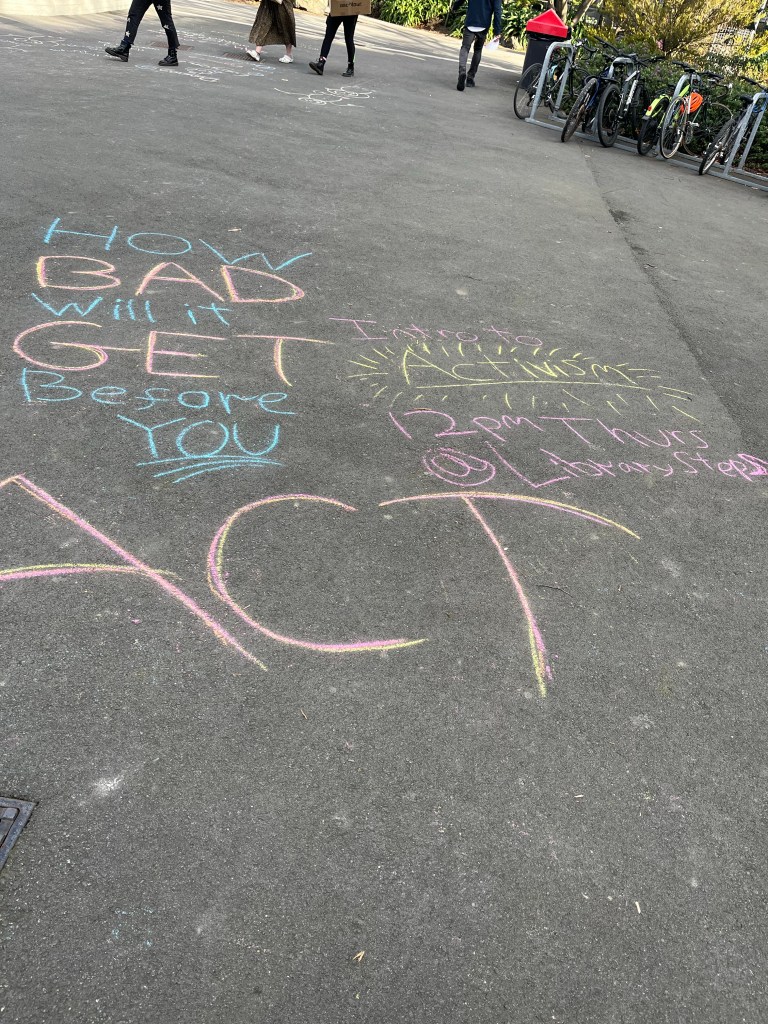 HOW
BAD
Will it
GET
Before
YOU
ACT
Intro to
ACTIVISM
12pm Thurs
@ Library Steps